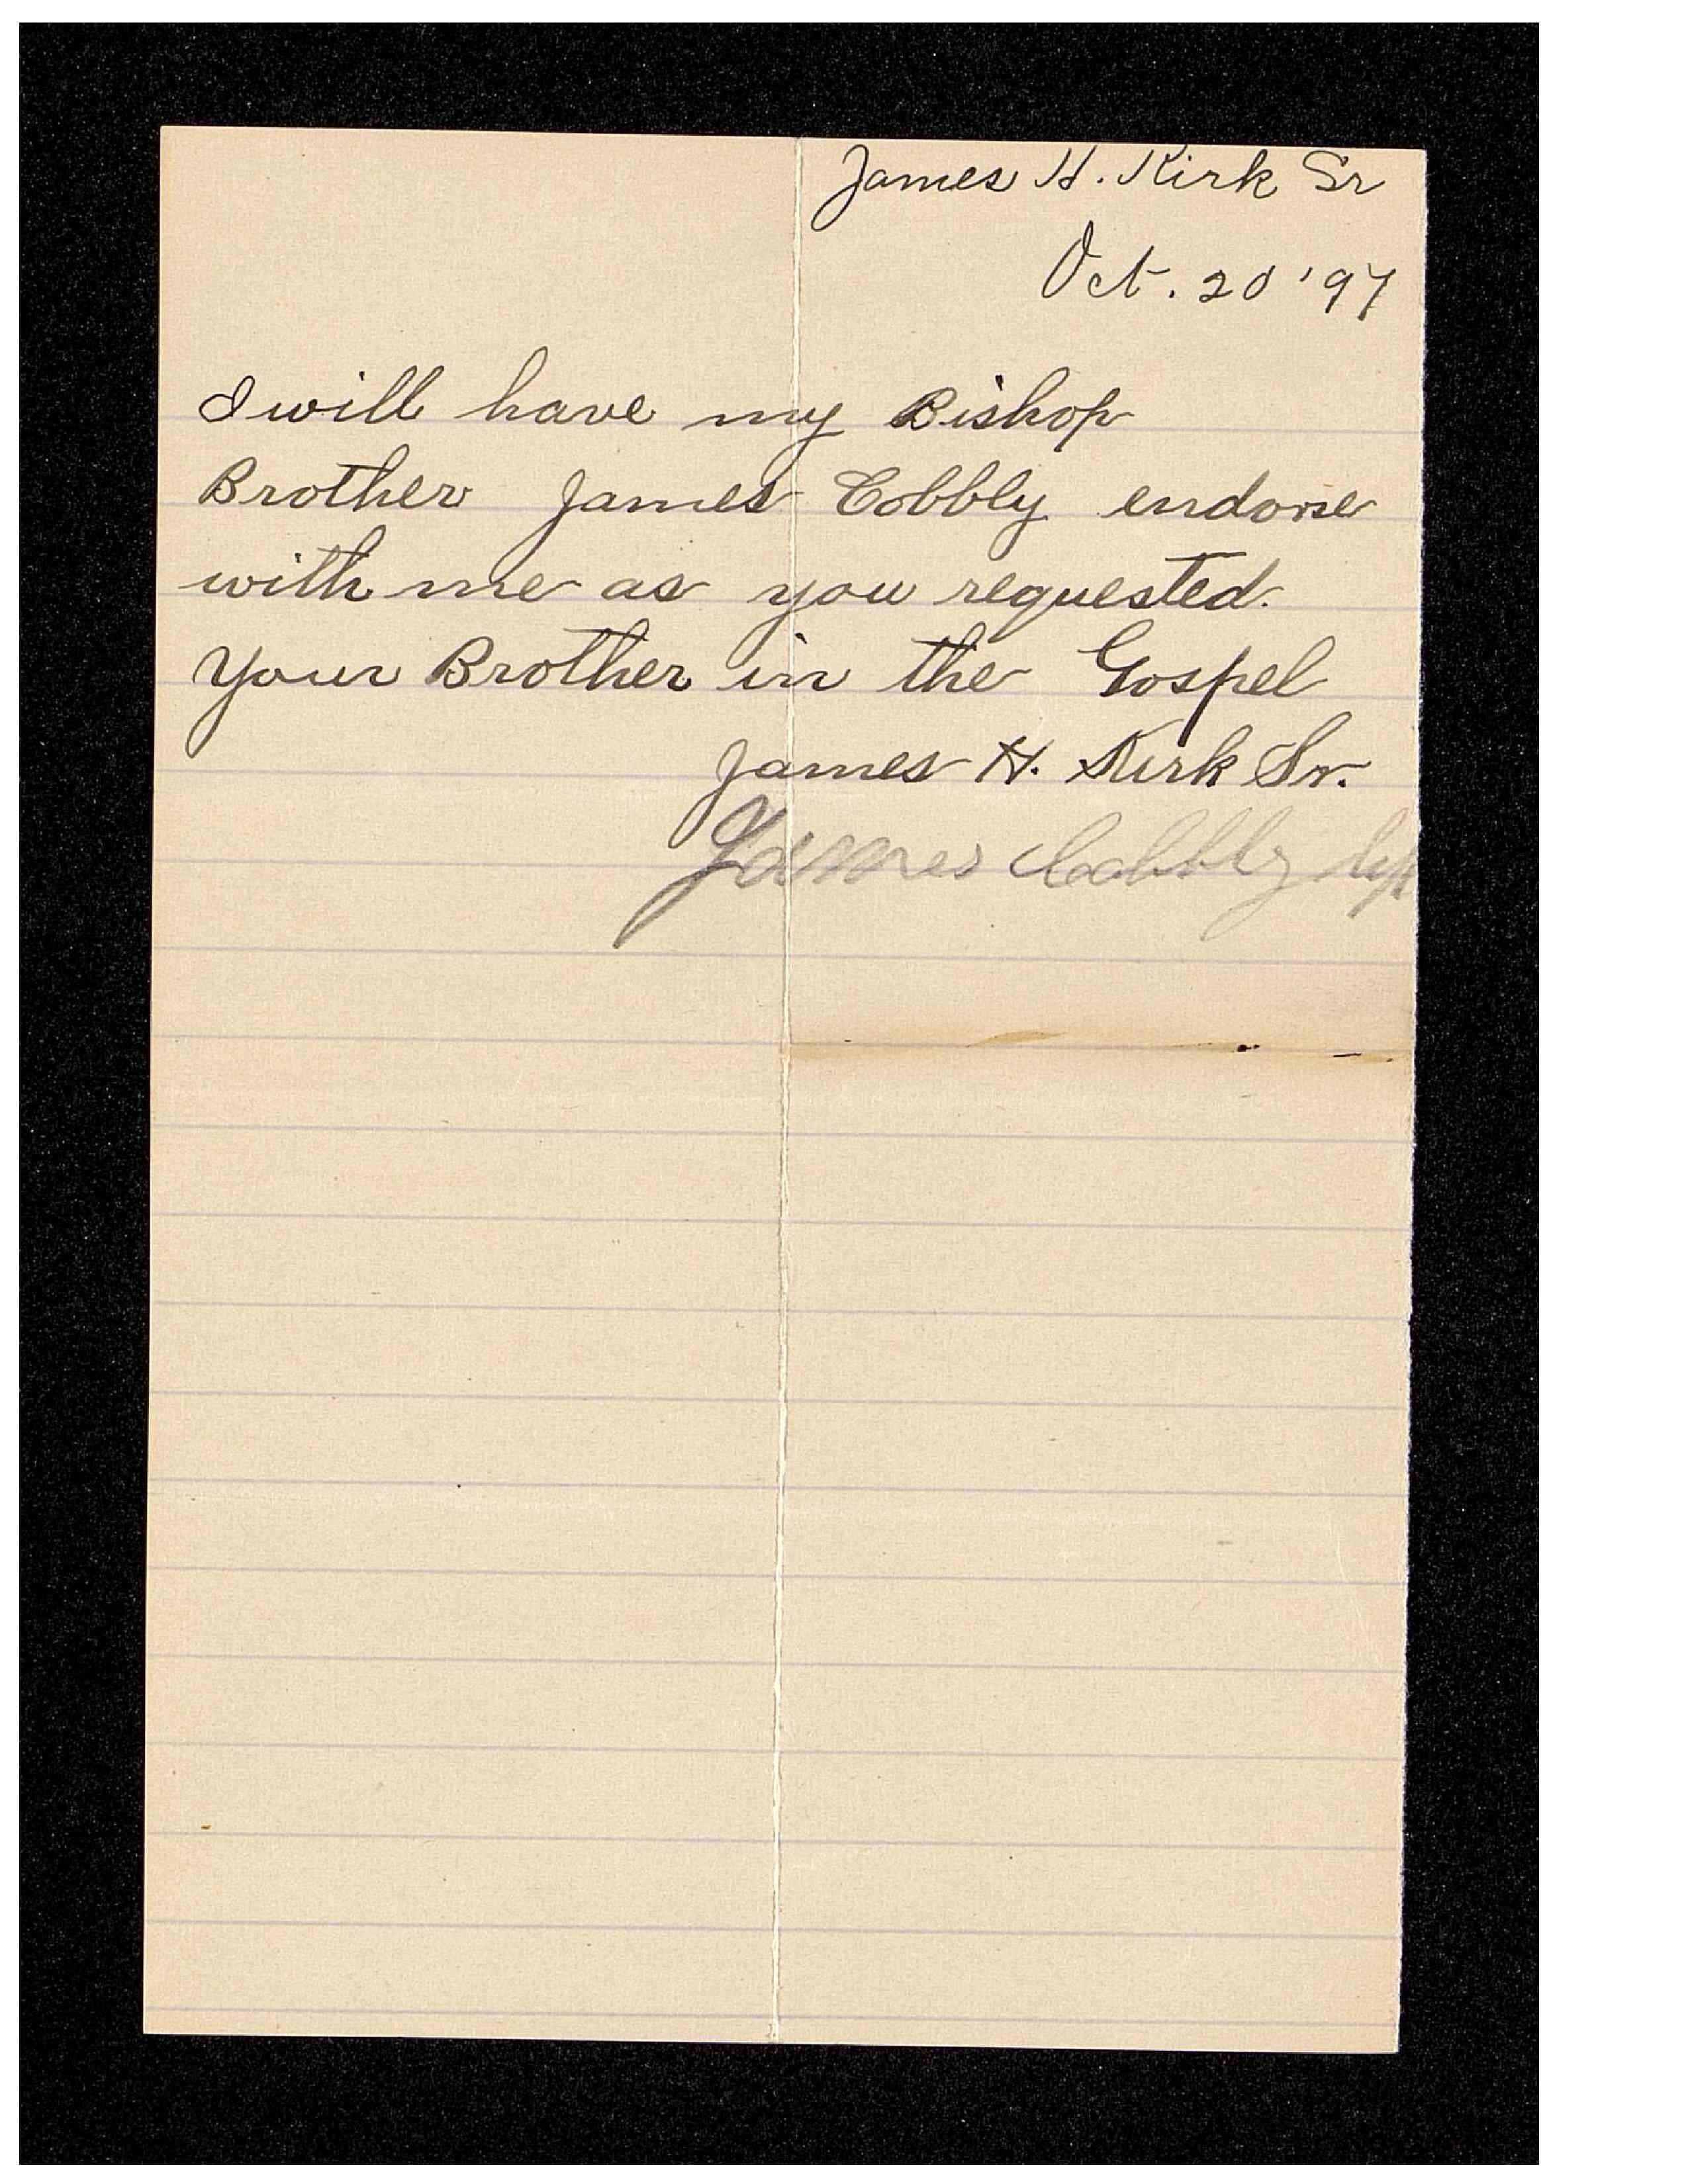 James H. Kirk Sr
Oct. 20 '97
I will have my Bishop
Brother James Cobbly endorse
with me as you requested.
Your Brother in the Gospel
James H. Kirk Sr.
James Cobbly